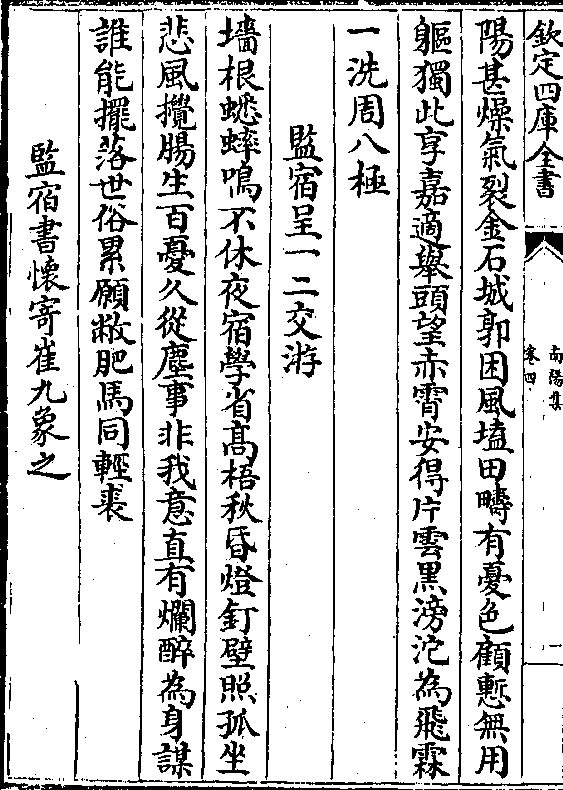 欽定四庫全書
南陽集
卷四
一
陽甚燥氣裂金石城郭困風壒田疇有憂色顧慙無用
軀獨此享嘉適舉頭望赤霄安得片雲黒滂沱為飛霖
一洗周八極
監宿呈一二交游
墻根蟋蟀鳴不休夜宿學省髙梧秋昏燈釘壁照孤坐
悲風攪腸生百憂久從塵事非我意直有爛醉為身謀
誰能擺落世俗累願敝肥馬同輕裘
監宿書懷寄崔九象之